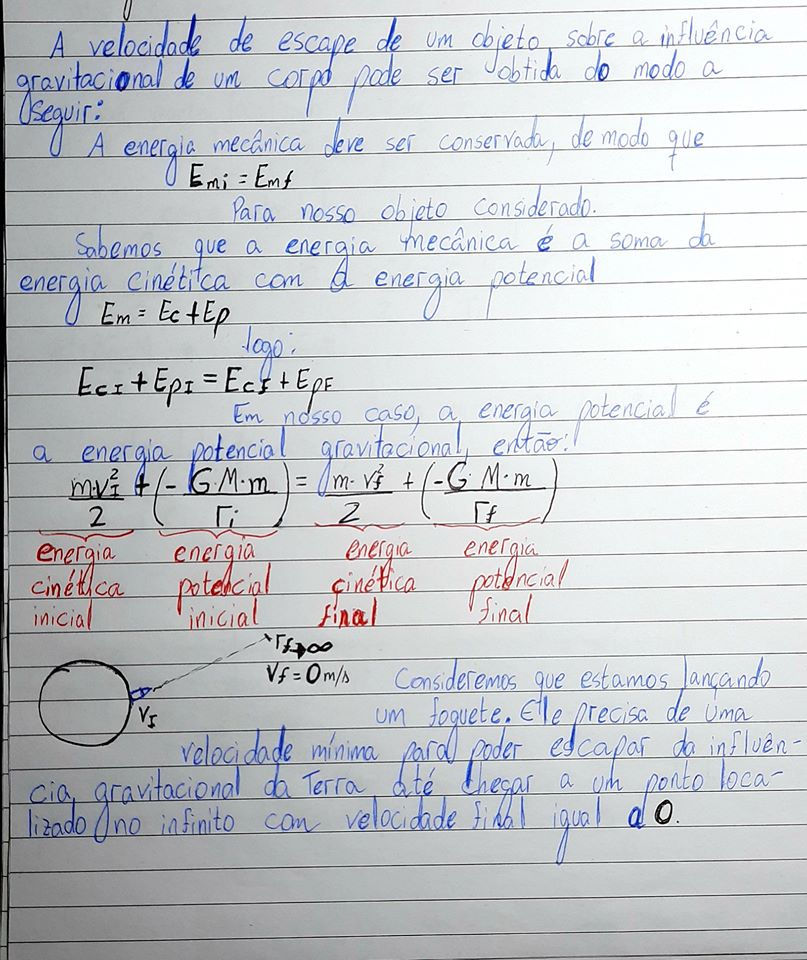 A velocidade de escape de um objeto sobre a influência
gravitacional de um corpo pode ser obtida do modo a
seguir:
A energia mecânica deve ser conservada, de modo que
Emi = Emf
Para nosso objeto considerado.
Sabemos que a energia mecânica é a soma da
energia cinética com a energia potencial
Em = Ec + Ep
logo:
EcI + EpI = Ecf + EpF
Em nosso caso, a energia potencial é
a energia potencial gravitacional, então:
m·vI²/2 + (- G·M·m/ri) = m·vf²/2 + (-G·M·m/rf)
energia energia energia energia
cinética potencial cinética potencial
inicial inicial final final
rf→∞
Vf = 0 m/s
VI
Consideremos que estamos lançando
um foguete. Ele precisa de uma
velocidade mínima para poder escapar da influên-
cia gravitacional da Terra até chegar a um ponto loca-
lizado no infinito com velocidade final igual a 0.